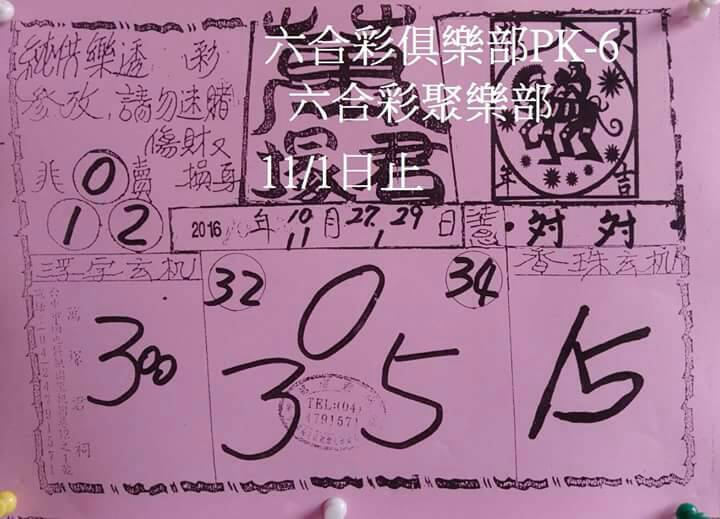 純供樂透 彩
參改,請勿迷賭
傷財又
損身
非 0 賣
1 2
六合彩俱樂部PK-6
六合彩聚樂部
11/1日止
大
吉
年
2016 年 10 月 27. 29 日
11 1
對 對
浮字玄机
32
34
香珠玄机
300
0
3 5
15
萬
君
祠
TEL:(04)